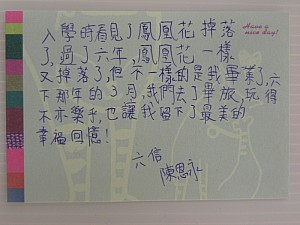 Have a
nice day!
入學時看見了鳳凰花掉落
了,過了六年,鳳凰花一樣
又掉落了,但不一樣的是我畢業了,六
下那年的3月,我們去了畢旅,玩得
不亦樂乎,也讓我留下了最美的
幸福回憶!
六信
陳恩永